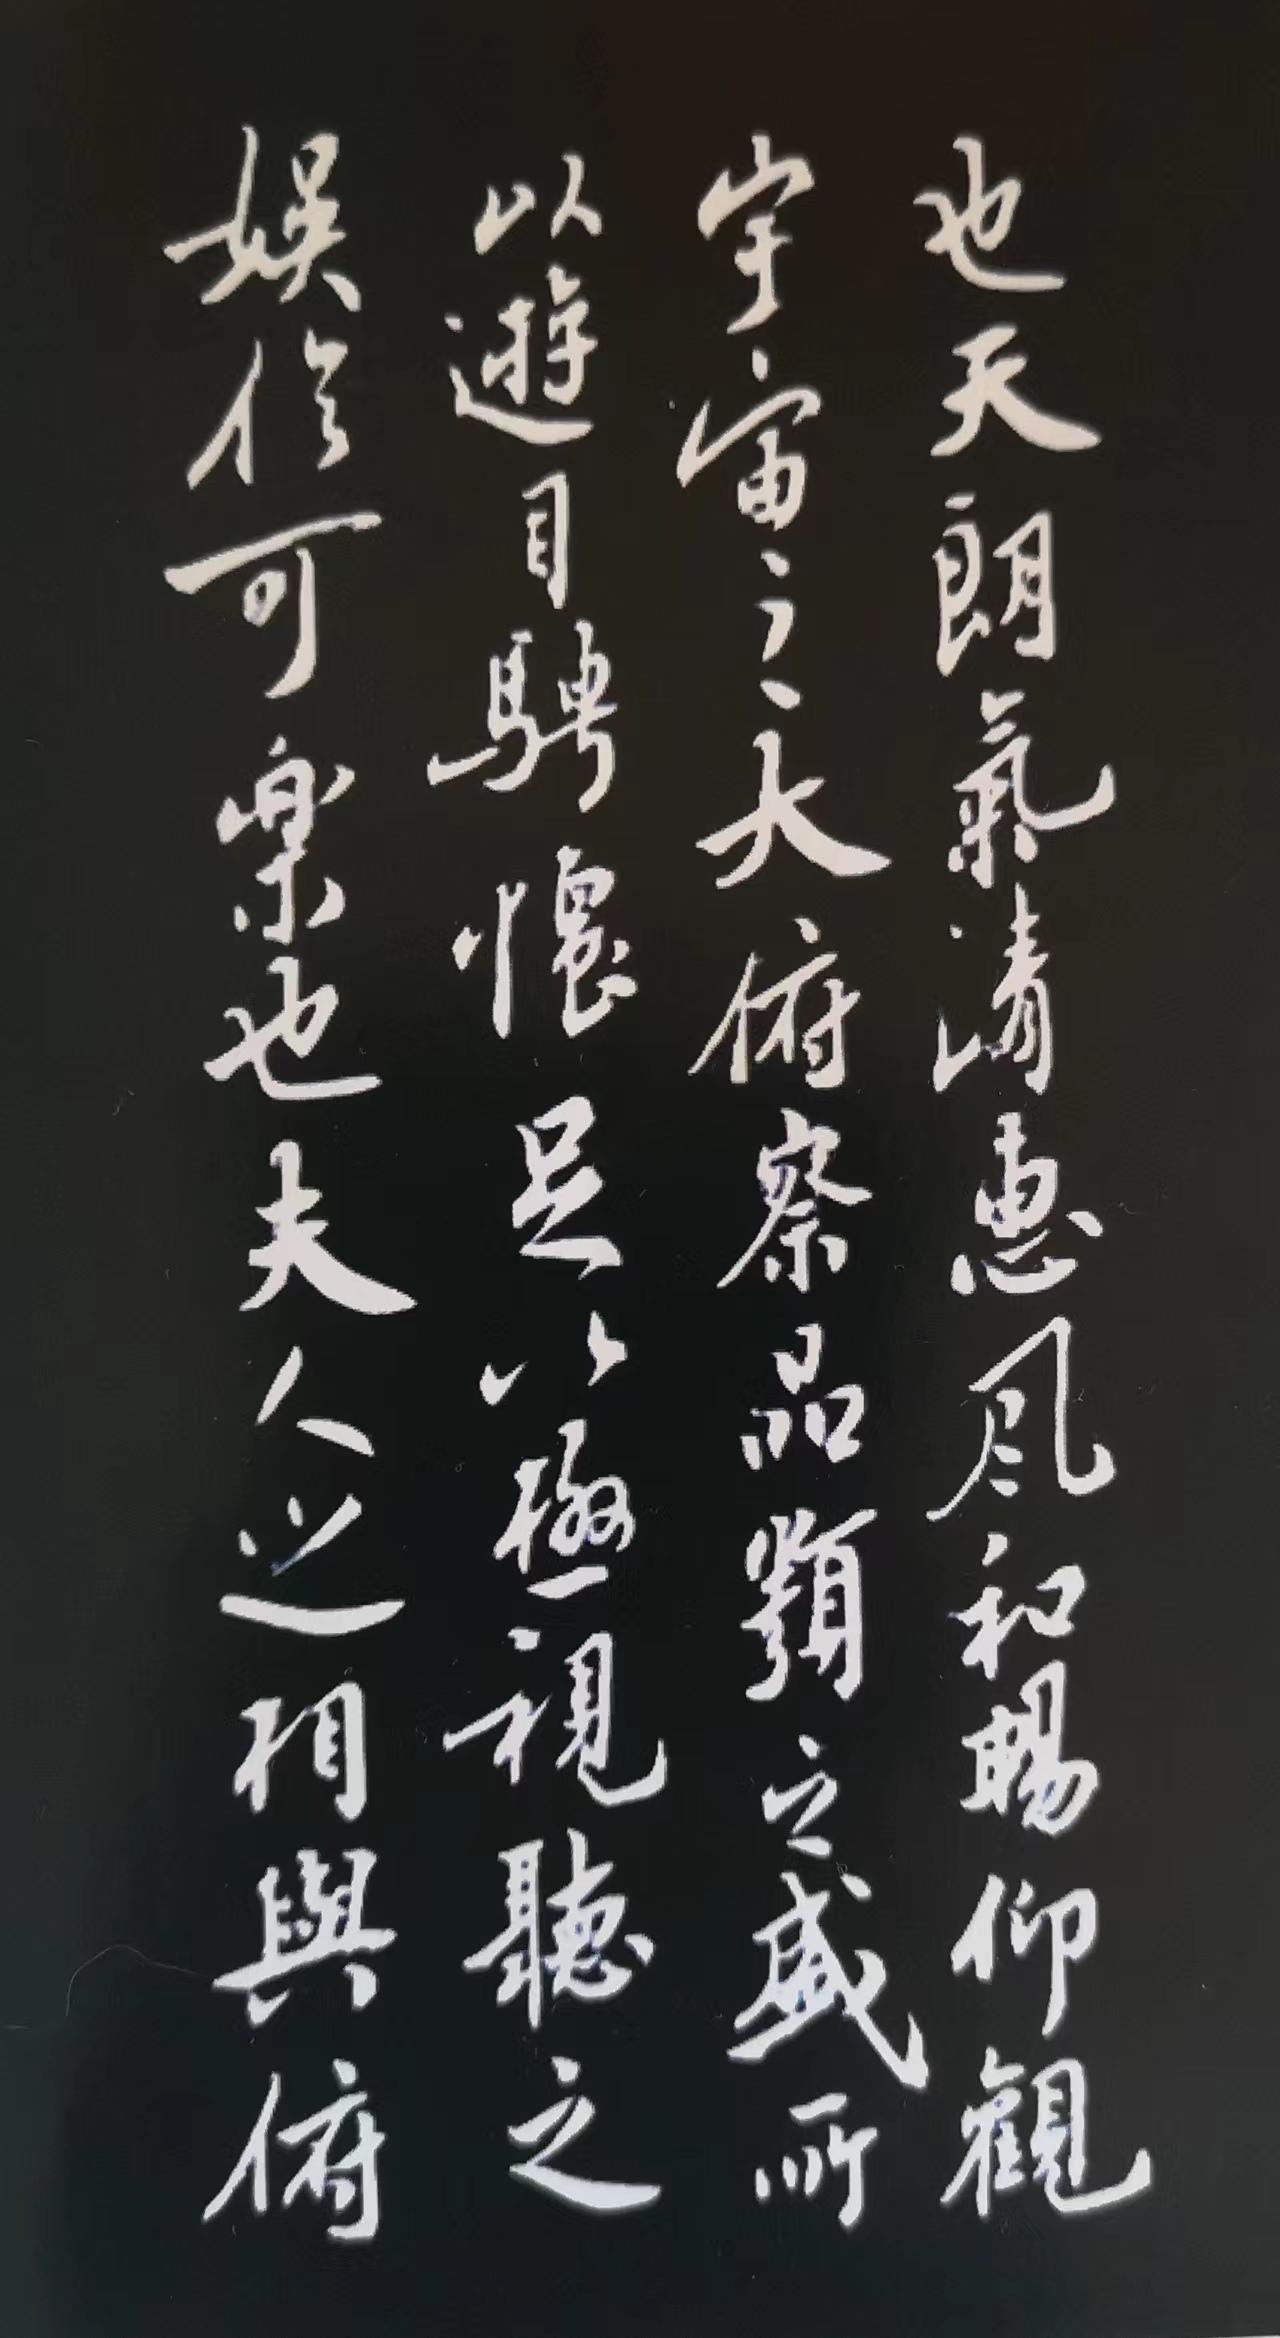 也天朗氣清惠風和暢仰觀
宇宙之大俯察品類之盛所
以遊目騁懷足以極視聽之
娛信可樂也夫人之相與俯